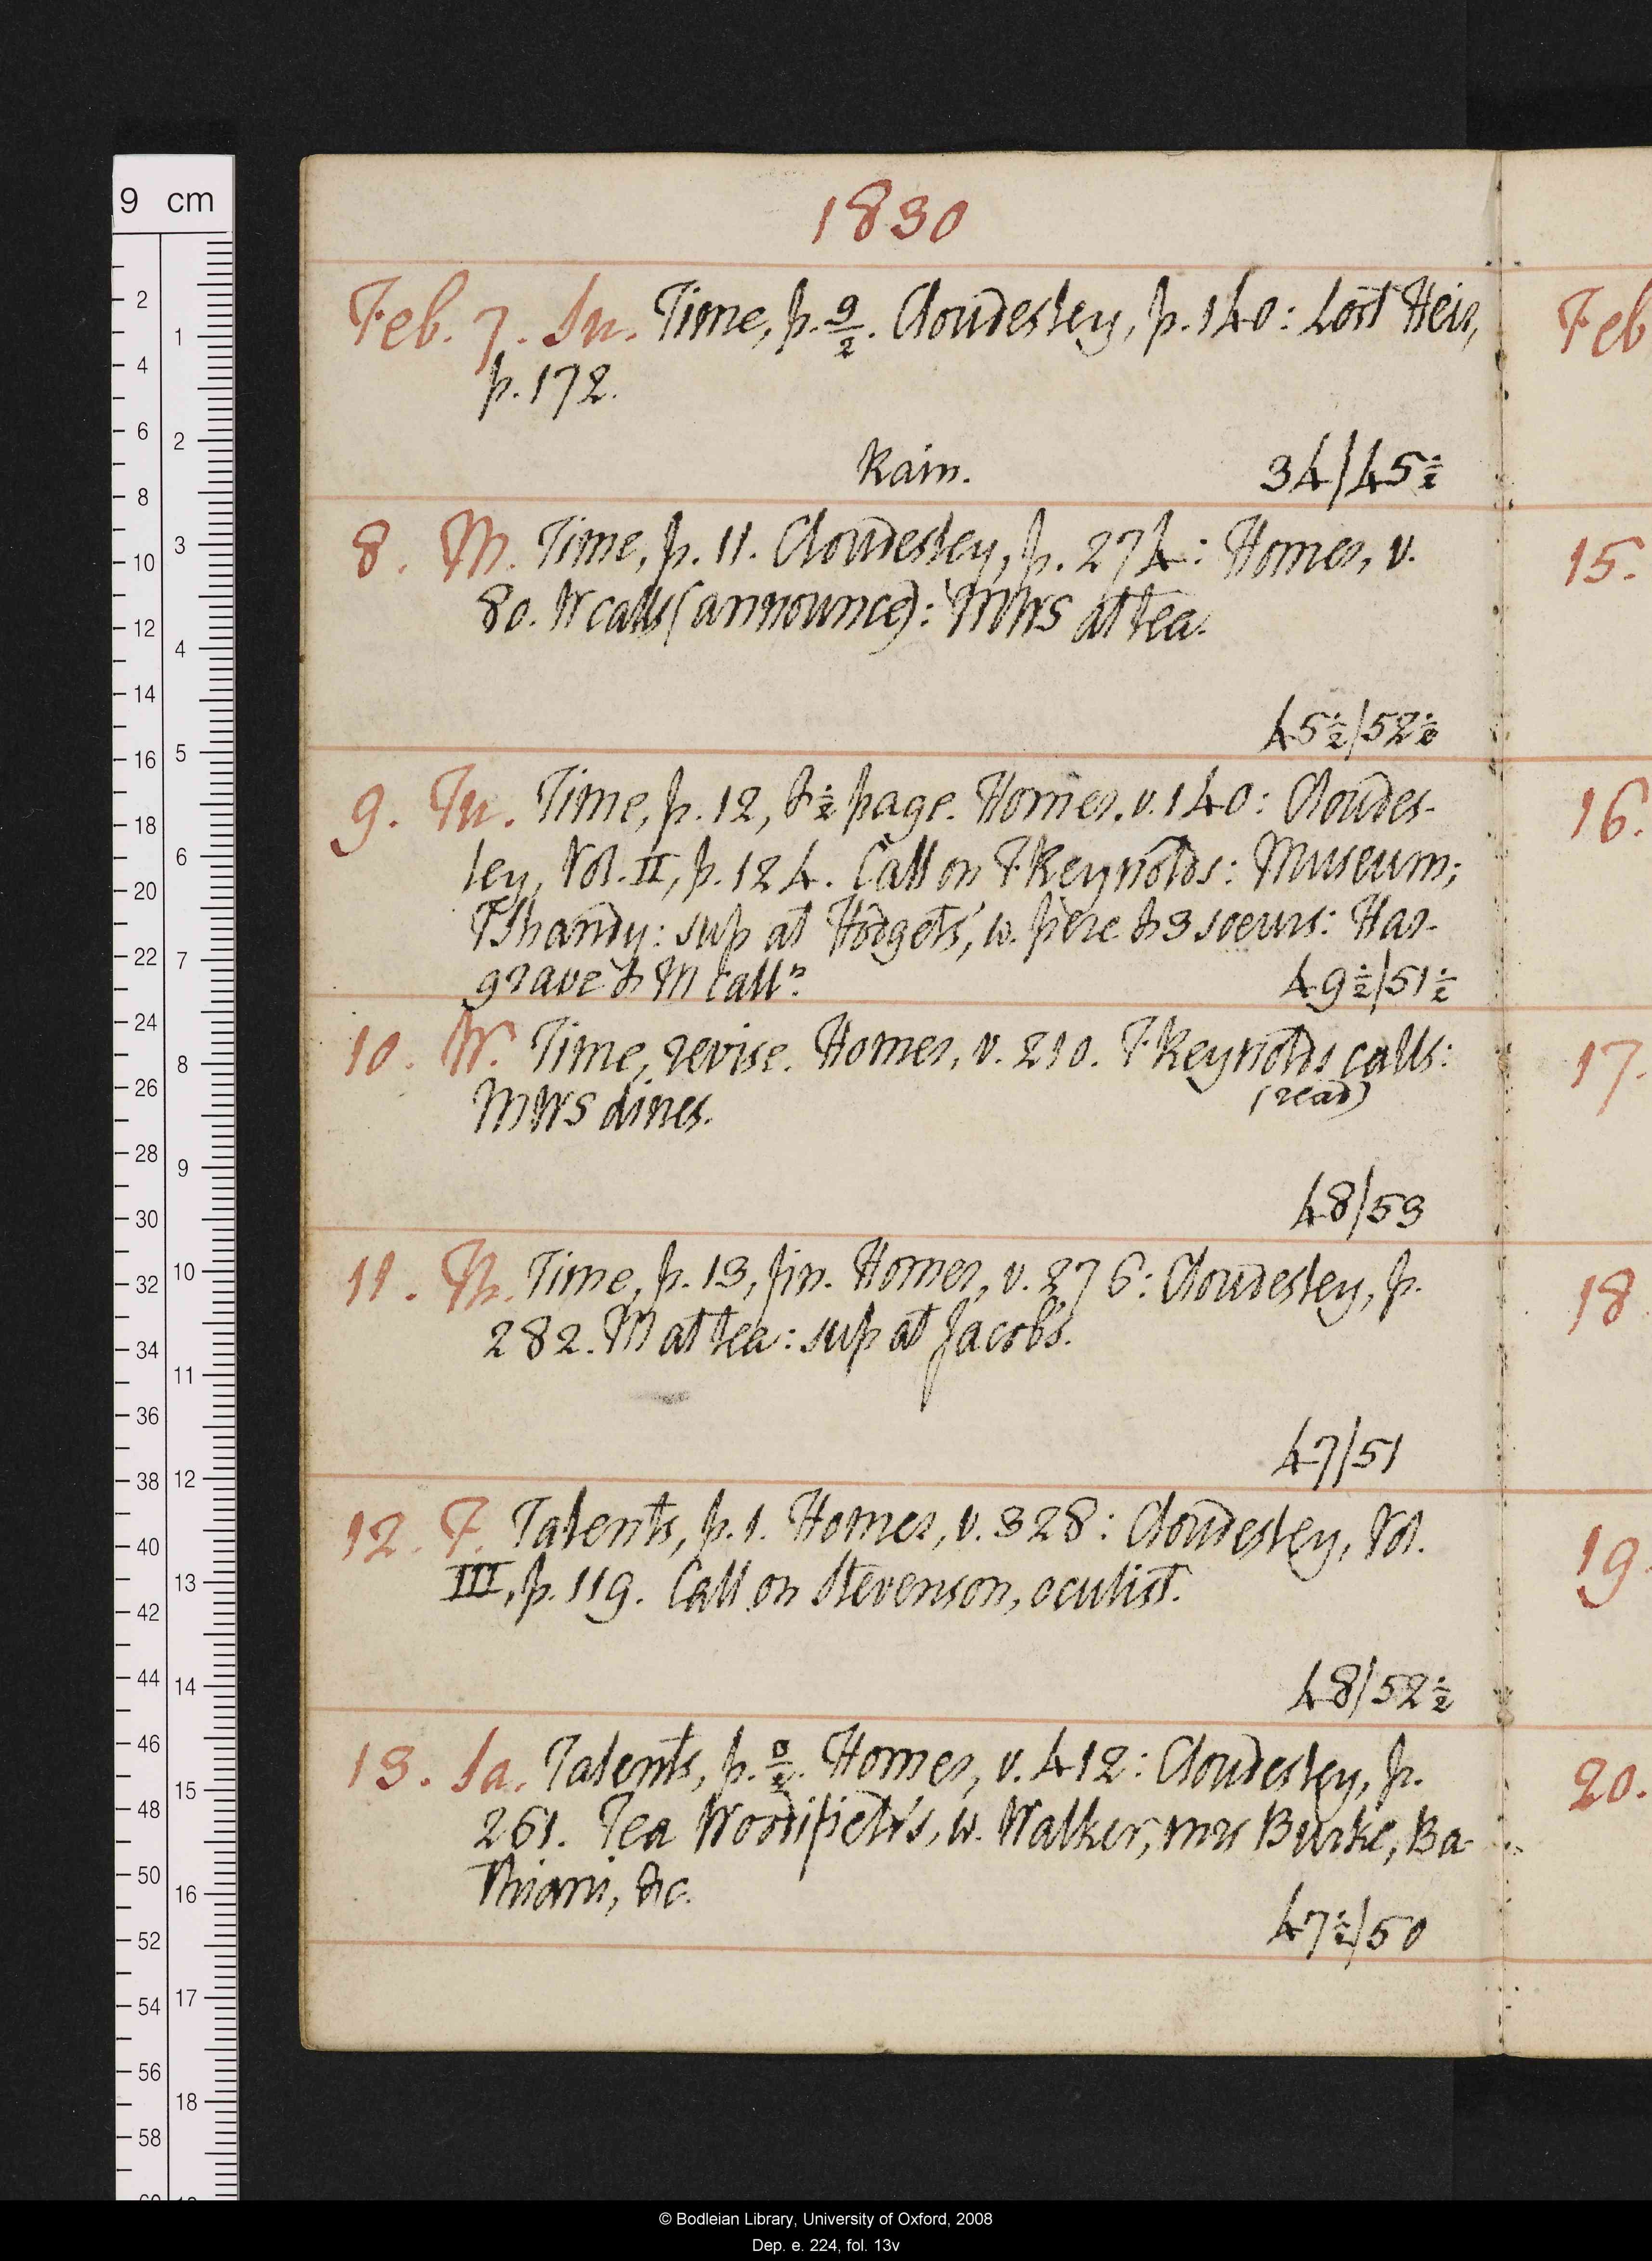 1830
Feb. 7. Su. Time, p. 9/2. Cloudesley, p. 140: Lost Heir,
p. 172.
Rain. 34/45½
8. M. Time, p. 11. Cloudesley, p. 274: Homer, v.
80. W calls (announce): MWS at tea.
45½/52½
9. Tu. Time, p. 12, & ½ page. Homer, v. 140: Cloudes-
ley, Vol. II, p. 124. Call on F Reynolds: Museum;
T Shandy: sup at Hodgets', w. père & 3 soeurs: Har-
grave & M calln. 49½/51½
10. W. Time, revise. Homer, v. 210. F Reynolds calls:
MWS dines. (read)
48/53
11. Th. Time, p. 13, fin. Homer, v. 276: Cloudesley, p.
282. M at tea: sup at Jacobs's.
47/51
12. F. Talents, p. 1. Homer, v. 328: Cloudesley, Vol.
III, p. 119. Call on Stevenson, oculist.
48/52½
13. Sa. Talents, p. /2. Homer, v. 412: Cloudesley, p.
261. Tea Woodifield's, w. Walker, mrs Burke, Ba-
thiani, &c.
47½/50
Feb
15.
16.
17.
18
19.
20.
9 cm
2
4
6
8
10
12
14
16
18
20
22
24
26
28
30
32
34
36
38
40
42
44
46
48
50
52
54
56
58
1
2
3
4
5
6
7
8
9
10
11
12
13
14
15
16
17
18
© Bodleian Library, University of Oxford, 2008
Dep. e. 224, fol. 13v